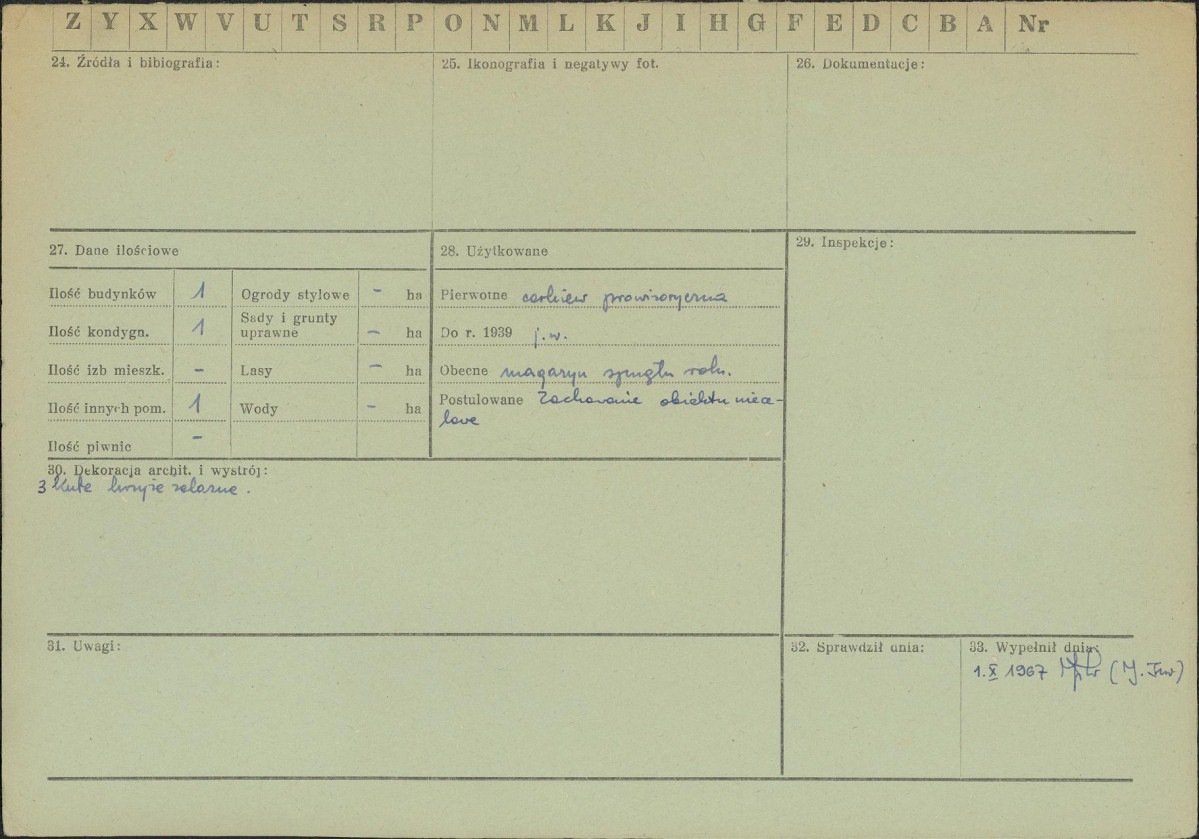 Z Y X W V U T S R P O N M L K J I H G F E D C B A Nr
24. Źródła i bibiografia:
25. Ikonografia i negatywy fot.
26. Dokumentacje:
27. Dane ilościowe
Ilość budynków 1 Ogrody stylowe - ha
Ilość kondygn. 1 Sady i grunty uprawne - ha
Ilość izb mieszk. - Lasy - ha
Ilość innych pom. 1 Wody - ha
Ilość piwnic -
28. Użytkowane
Pierwotne cerkiew prowizoryczna
Do r. 1939 j.w.
Obecne magazyn sprzętu roln.
Postulowane Zachowanie obiektu niece-
lowe
29. Inspekcje:
30. Dekoracja archit. i wystrój:
3 kute krzyże żelazne.
31. Uwagi:
32. Sprawdził dnia:
33. Wypełnił dnia:
1.X 1967